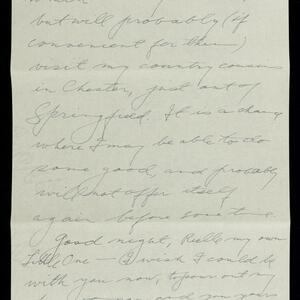 but will probably (if
convenient for them)
visit my country cousins
in Chester, just out of
Springfield. It is a chance
where I may be able to do
some good, and probably
will not offer itself
again before some time.
Good night, Belle, my own
Little One — I wish I could be
with you now, to pour out my